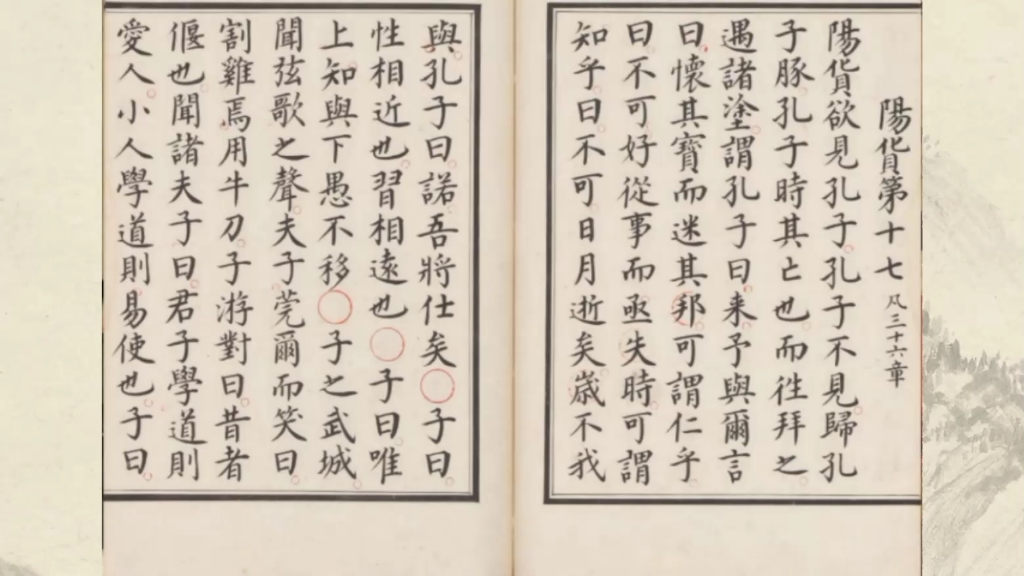 陽貨第十七 凡三十六章
陽貨欲見孔子孔子不見歸孔
子豚孔子時其亡也而往拜之
遇諸塗謂孔子曰来予與爾言
曰懷其寶而迷其邦可謂仁乎
曰不可好從事而亟失時可謂
知乎曰不可日月逝矣歳不我
與孔子曰諾吾將仕矣○子曰
性相近也習相遠也○子曰唯
上知與下愚不移○子之武城
聞弦歌之聲夫子莞爾而笑曰
割雞焉用牛刀子游對曰昔者
偃也聞諸夫子曰君子學道則
愛人小人學道則易使也子曰